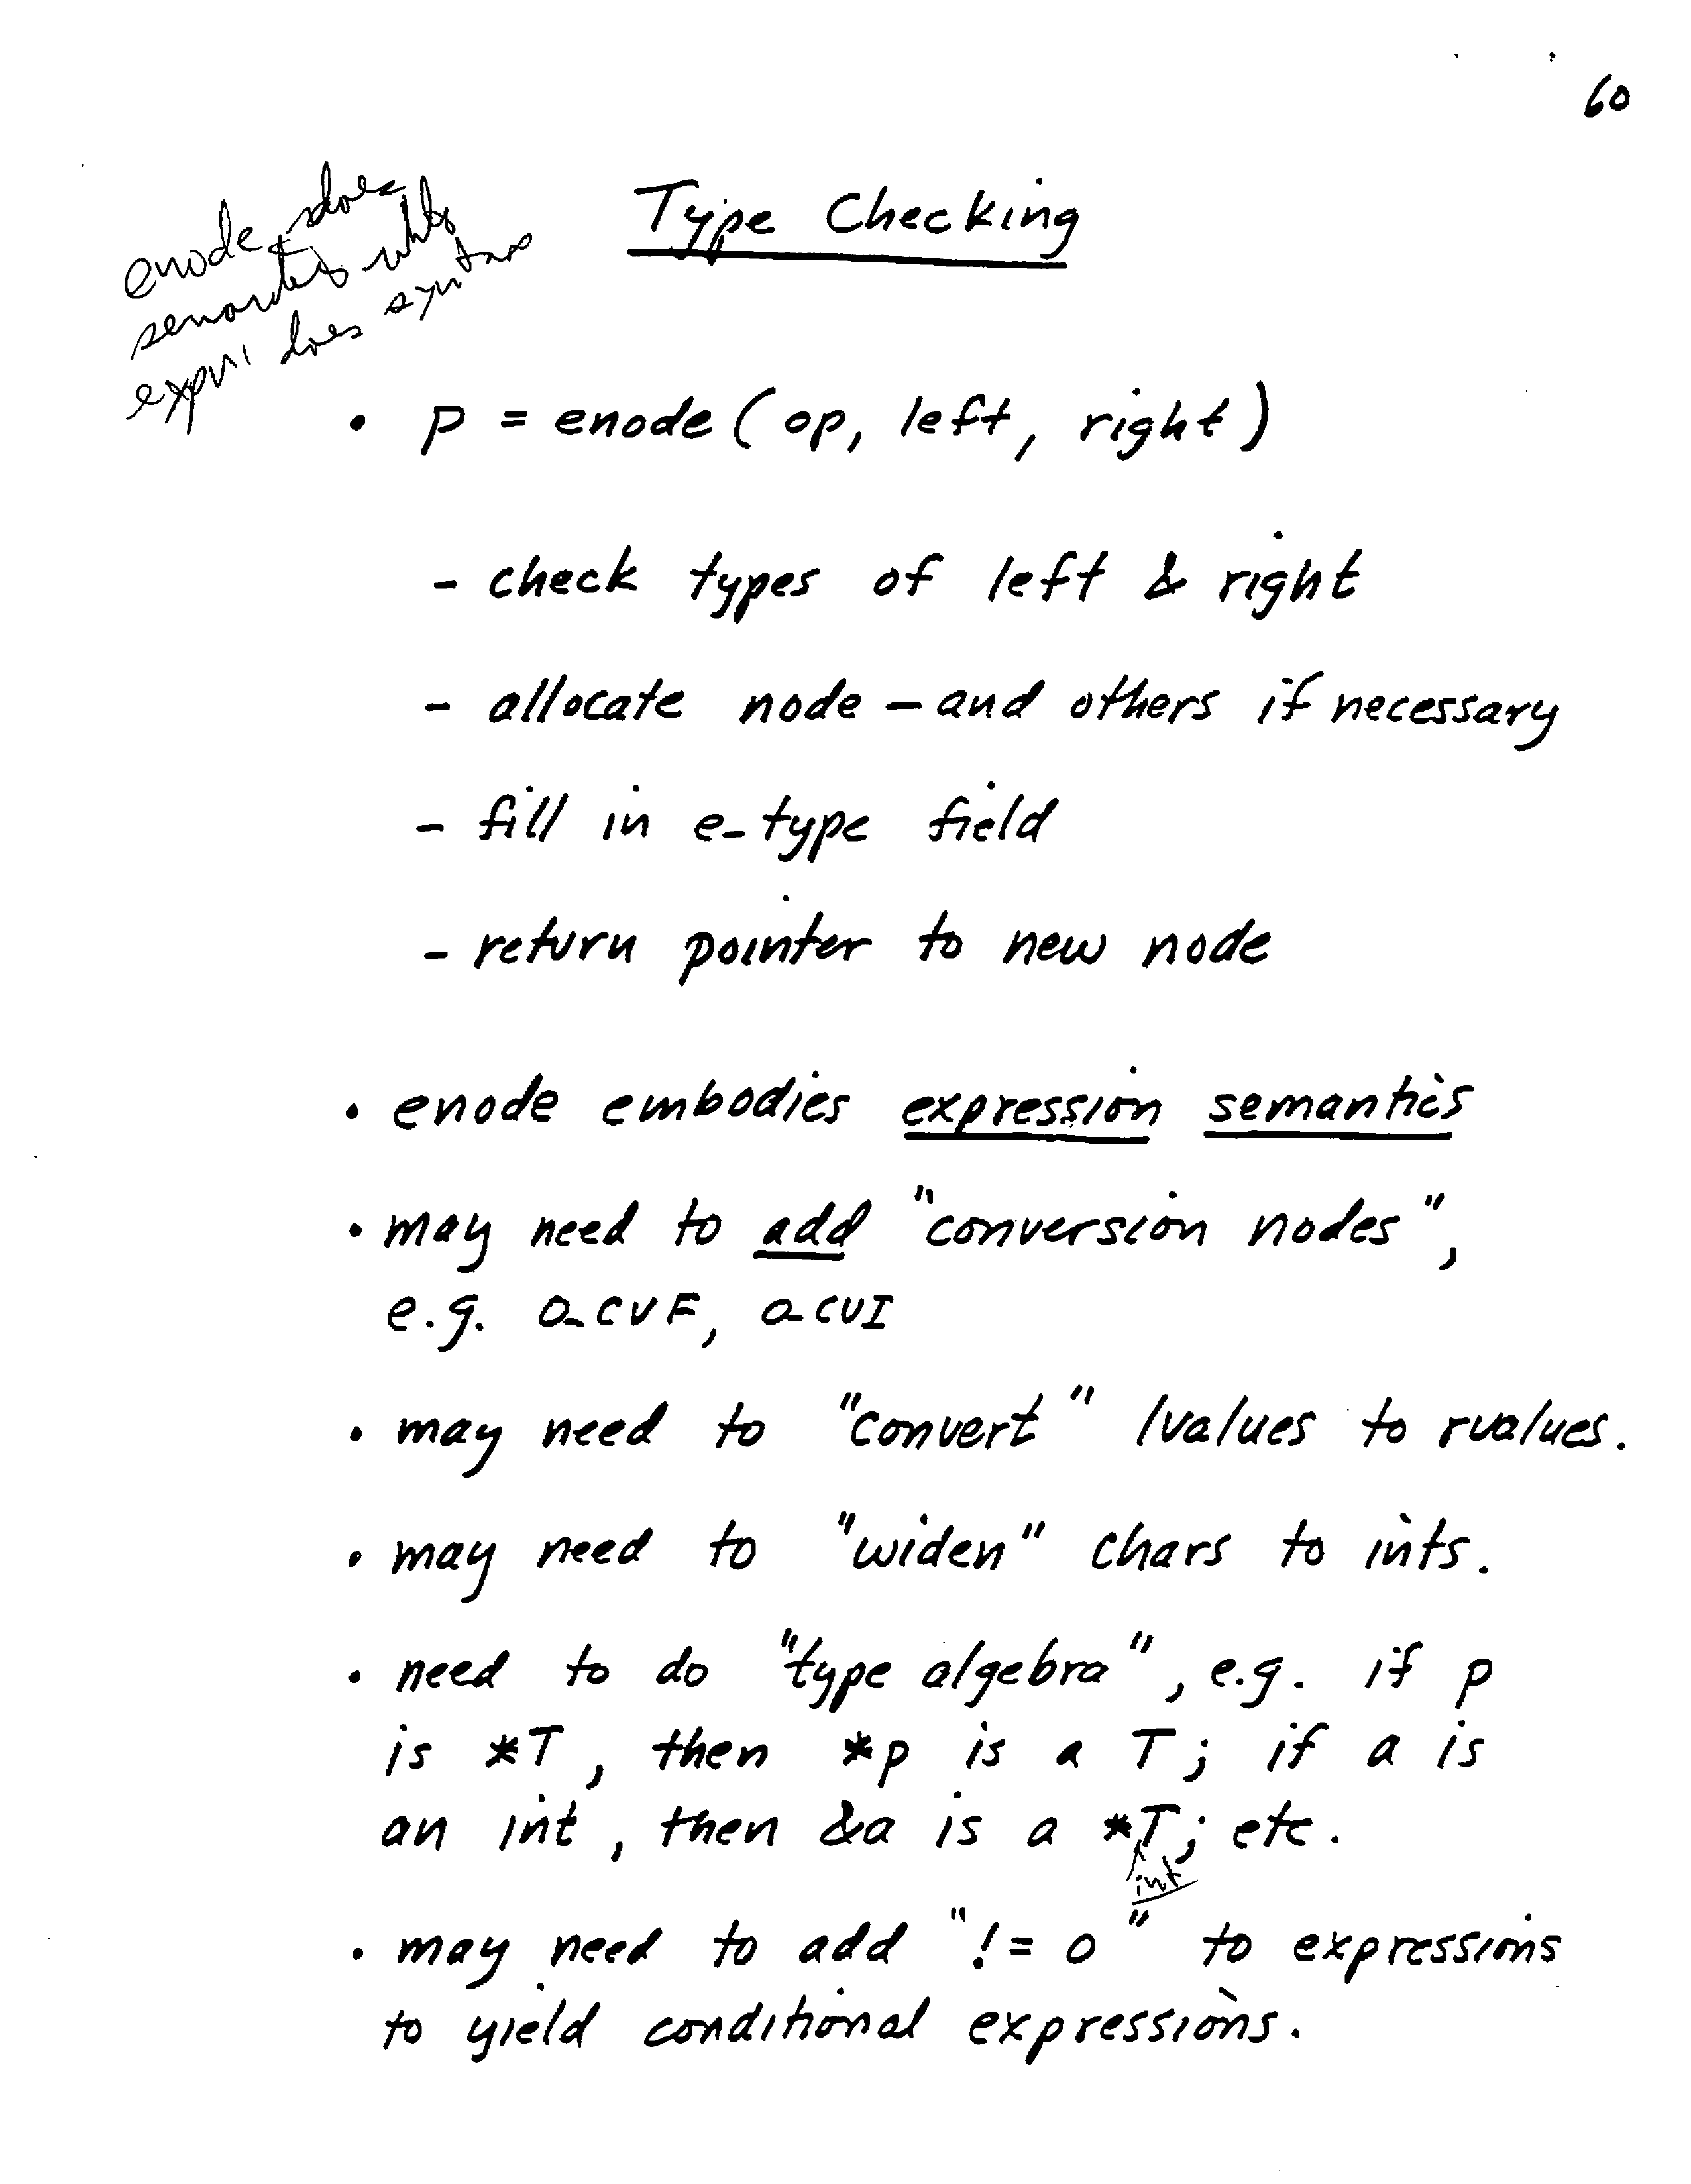 60
enode does
semantics while
expr1 does syntax
Type Checking
• p = enode ( op, left, right )
- check types of left & right
- allocate node — and others if necessary
- fill in e_type field
- return pointer to new node
• enode embodies expression semantics
• may need to add "conversion nodes",
e.g. O_CVF, O_CVI
• may need to "convert" lvalues to rvalues.
• may need to "widen" chars to ints.
• need to do "type algebra", e.g. if p
is *T, then *p is a T; if a is
an int, then &a is a *T; etc.
int
• may need to add "!= 0" to expressions
to yield conditional expressions.